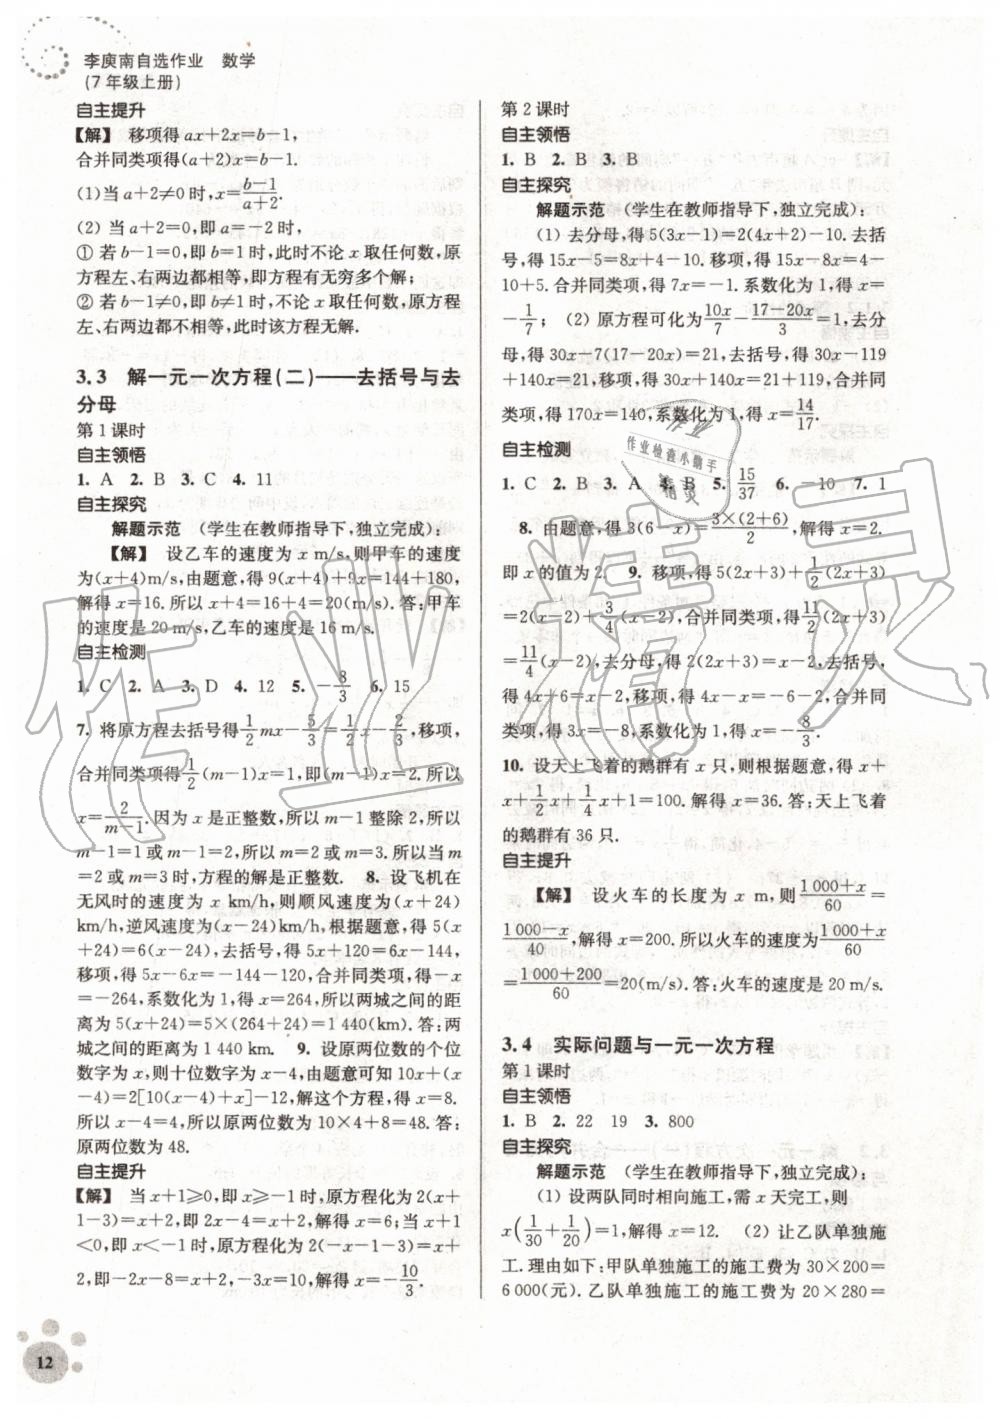 李庾南自选作业 数学
(7年级上册)
自主提升
【解】 移项得 ax+2x=b-1,
合并同类项得(a+2)x=b-1.
(1)当 a+2≠0 时,x=\frac{b-1}{a+2}.
(2) 当 a+2=0,即 a=-2 时,
① 若 b-1=0,即 b=1,此时不论 x 取任何数,原
方程左、右两边都相等,即方程有无穷多个解;
② 若 b-1≠0,即 b≠1 时,不论 x 取任何数,方程
左、右两边都不相等,此时该方程无解.
3.3 解一元一次方程(二)——去括号与去
分母
第 1 课时
自主领悟
1. A 2. B 3. C 4. 11
自主探究
解题示范 (学生在教师指导下,独立完成):
【解】 设乙车的速度为 x m/s,则甲车的速度
为(x+4)m/s,由题意,得 9(x+4)+9x=144+180,
解得 x=16.所以 x+4=16+4=20(m/s).答:甲车
的速度是 20 m/s,乙车的速度是 16 m/s.
自主检测
1. C 2. A 3. D 4. 12 5. -\frac{8}{3} 6. 15
7. 将原方程去括号得\frac{1}{2}mx-\frac{5}{3}=\frac{1}{2}x-\frac{2}{3},移项,
合并同类项得\frac{1}{2}(m-1)x=1,即(m-1)x=2.所以
x=\frac{2}{m-1}.因为 x 是正整数,所以 m-1 整除 2,所以
m-1=1 或 m-1=2,所以 m=2 或 m=3.所以当 m
=2 或 m=3 时,方程的解是正整数. 8. 设飞机在
无风时的速度为 x km/h,则顺风速度为(x+24)
km/h,逆风速度为(x-24)km/h,根据题意,得 5(x
+24)=6(x-24),去括号,得 5x+120=6x-144,
移项,得 5x-6x=-144-120,合并同类项,得-x
=-264,系数化为 1,得 x=264,所以两城之间的距
离为 5(x+24)=5×(264+24)=1 440(km).答:两
城之间的距离为 1 440 km. 9. 设原两位数的个位
数字为 x,则十位数字为 x-4,由题意可知 10x+(x
-4)=2[10(x-4)+x]-12,解这个方程,得 x=8.
所以 x-4=4,所以原两位数为 10×4+8=48.答:
原两位数为 48.
自主提升
【解】 当 x+1⩾0,即 x⩾-1 时,原方程化为 2(x+
1-3)=x+2,即 2x-4=x+2,解得 x=6;当 x+1
<0,即 x<-1 时,原方程化为 2(-x-1-3)=x+2,
即-2x-8=x+2,-3x=10,解得 x=-\frac{10}{3}.
12
第 2 课时
自主领悟
1. B 2. B 3. B
自主探究
解题示范 (学生在教师指导下,独立完成):
(1) 去分母,得 5(3x-1)=2(4x+2)-10.去括
号,得 15x-5=8x+4-10.移项,得 15x-8x=4-
10+5.合并同类项,得 7x=-1.系数化为 1,得 x=
-\frac{1}{7}; (2) 原方程可化为\frac{10x}{7}-\frac{17-20x}{3}=1,去分
母,得 30x-7(17-20x)=21,去括号,得 30x-119
+140x=21,移项,得 30x+140x=21+119,合并同
类项,得 170x=140,系数化为 1,得 x=\frac{14}{17}.
自主检测
1. C 2. B 3. A 4. B 5. \frac{15}{37} 6. -10 7. 1
8. 由题意,得 3(6-x)=\frac{3×(2+6)}{2},解得 x=2.
即 x 的值为 2. 9. 移项,得 5(2x+3)+\frac{1}{2}(2x+3)
=2(x-2)+\frac{3}{4}(x-2),合并同类项,得\frac{11}{2}(2x+3)
=\frac{11}{4}(x-2),去分母,得 2(2x+3)=x-2,去括号,
得 4x+6=x-2,移项,得 4x-x=-6-2,合并同
类项,得 3x=-8,系数化为 1,得 x=-\frac{8}{3}.
10. 设天上飞着的鹅群有 x 只,则根据题意,得 x+
x+\frac{1}{2}x+\frac{1}{4}x+1=100.解得 x=36.答:天上飞着
的鹅群有 36 只.
自主提升
【解】 设火车的长度为 x m,则\frac{1 000+x}{60}=
\frac{1 000-x}{40},解得 x=200.所以火车的速度为\frac{1 000+x}{60}
=\frac{1 000+200}{60}=20(m/s).答:火车的速度是 20 m/s.
3.4 实际问题与一元一次方程
第 1 课时
自主领悟
1. B 2. 22 19 3. 800
自主探究
解题示范 (学生在教师指导下,独立完成):
(1) 设两队同时相向施工,需 x 天完工,则
x(\frac{1}{30}+\frac{1}{20})=1,解得 x=12. (2) 让乙队单独施
工.理由如下:甲队单独施工的施工费为 30×200=
6 000(元).乙队单独施工的施工费为 20×280=
作业
作业检查小帮手
精灵
作业精灵